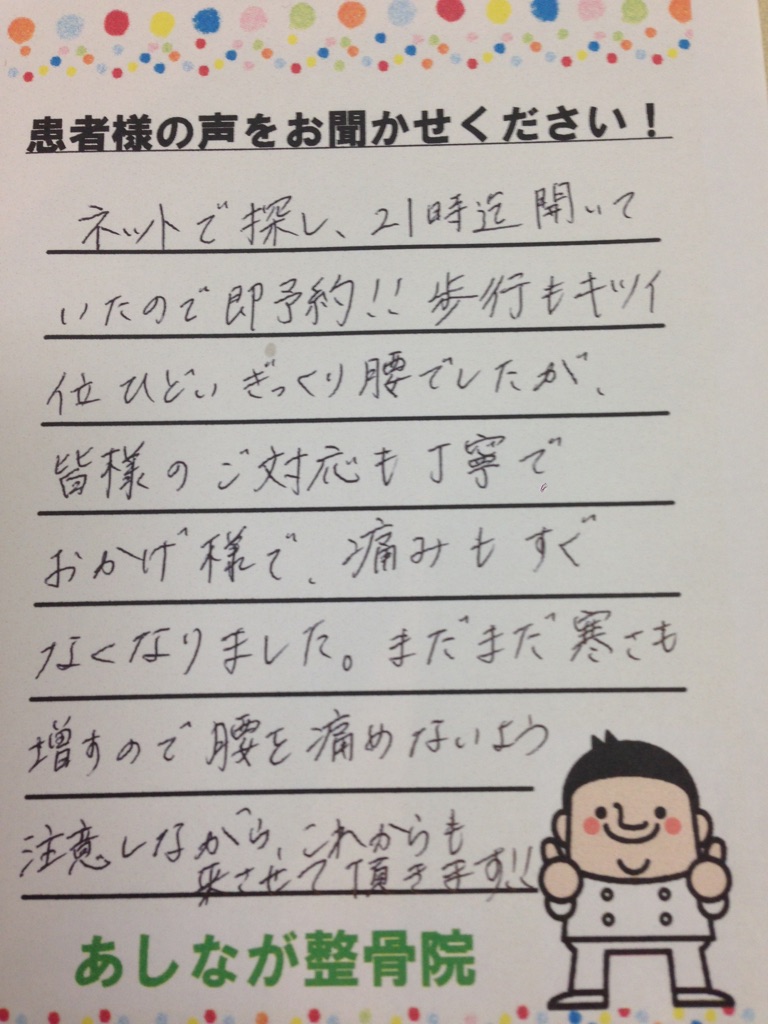 患者様の声をお聞かせください！
ネットで探し、21時迄開いて
いたので即予約!! 歩行もキツイ
位ひどいぎっくり腰でしたが、
皆様のご対応も丁寧で
おかげ様で、痛みもすぐ
なくなりました。まだまだ寒さも
増すので腰を痛めないよう
注意しながら、これからも
来させて頂きます!!
あしなが整骨院